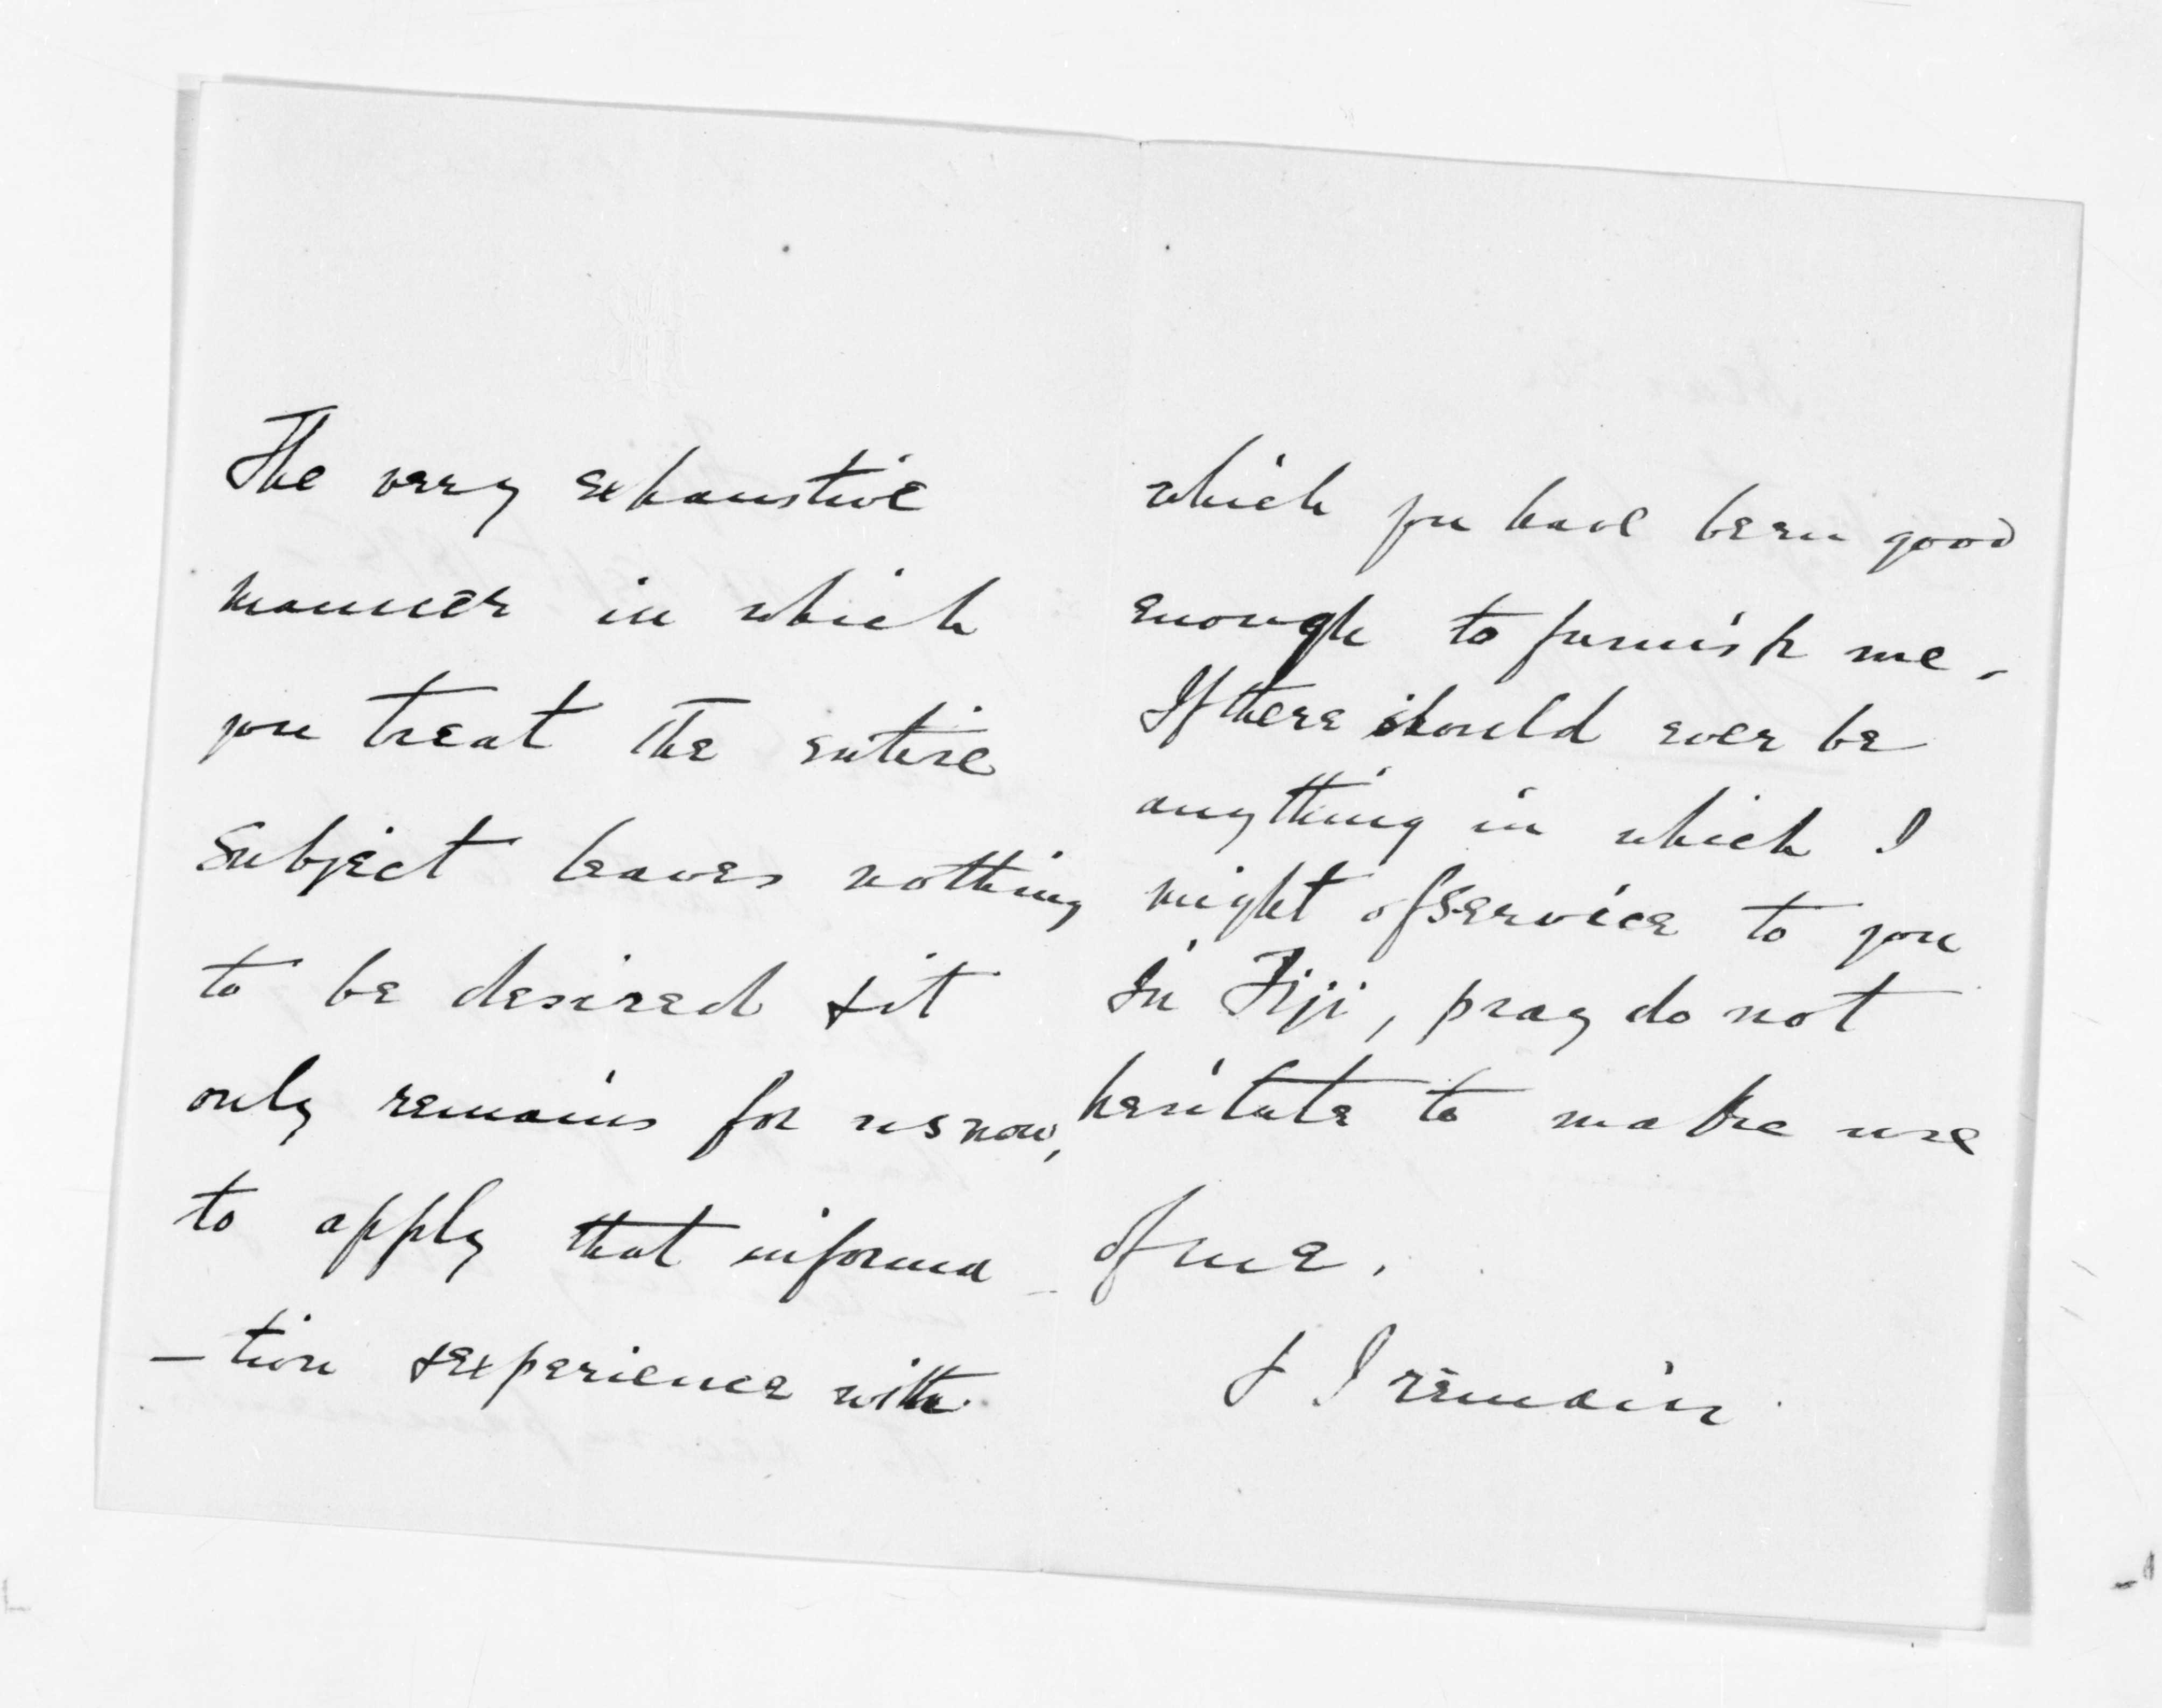 The very exhaustive
manner in which
you treat the entire
subject leaves nothing
to be desired & it
only remains for us now,
to apply that informa-
-tion & experience with
which you have been good
enough to furnish me.
If there should ever be
anything in which I
might of service to you
In Fiji, pray do not
hesitate to make use
of me.
& I remain